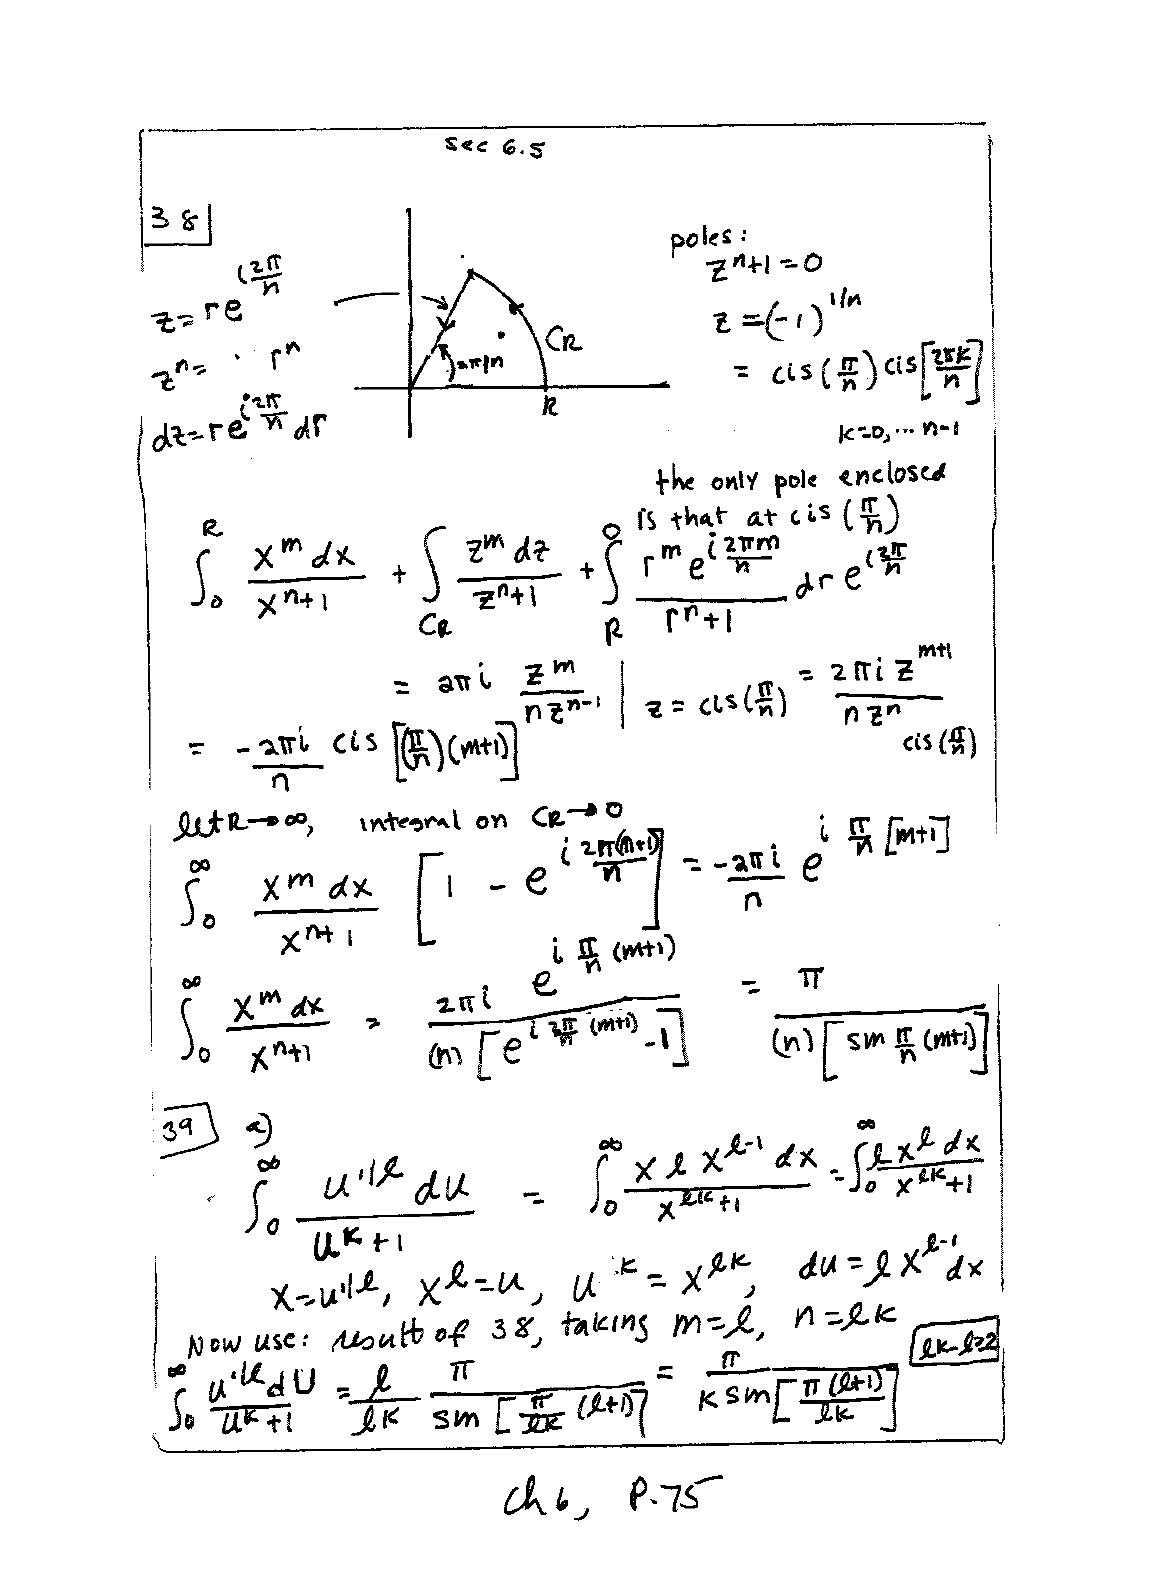 sec 6.5
38
z = re^{i 2π/n}
z^n = r^n
dz = re^{i 2π/n} dr
2π/n
C_R
R
poles:
z^n+1 = 0
z = (-1)^{1/n}
= cis(π/n) cis[2πk/n]
k=0, ... n-1
the only pole enclosed
is that at cis(π/n)
∫_0^R x^m dx/(x^n+1) + ∫_{C_R} z^m dz/(z^n+1) + ∫_R^0 r^m e^{i 2πm/n}/(r^n+1) dr e^{i 2π/n}
= 2πi z^m/(n z^{n-1}) | z = cis(π/n) = 2πi z^{m+1}/(n z^n) cis(π/n)
= -2πi/n cis[(π/n)(m+1)]
let R→∞, integral on C_R→0
∫_0^∞ x^m dx/(x^n+1) [1 - e^{i 2π(m+1)/n}] = -2πi/n e^{i π/n [m+1]}
∫_0^∞ x^m dx/(x^n+1) = 2πi e^{i π/n (m+1)}/((n)[e^{i 2π/n (m+1)} -1]) = π/((n)[sin π/n (m+1)])
39 a)
∫_0^∞ u^{1/l} du/(u^k+1) = ∫_0^∞ x l x^{l-1} dx/(x^{lk}+1) = ∫_0^∞ l x^l dx/(x^{lk}+1)
x=u^{1/l}, x^l=u, u^k = x^{lk}, du = l x^{l-1} dx
Now use: result of 38, taking m=l, n=lk
lk-l≥2
∫_0^∞ u^{1/l} du/(u^k+1) = l/(lk) π/(sin[π/(lk) (l+1)]) = π/(k sin[π(l+1)/(lk)])
Ch 6, P.75